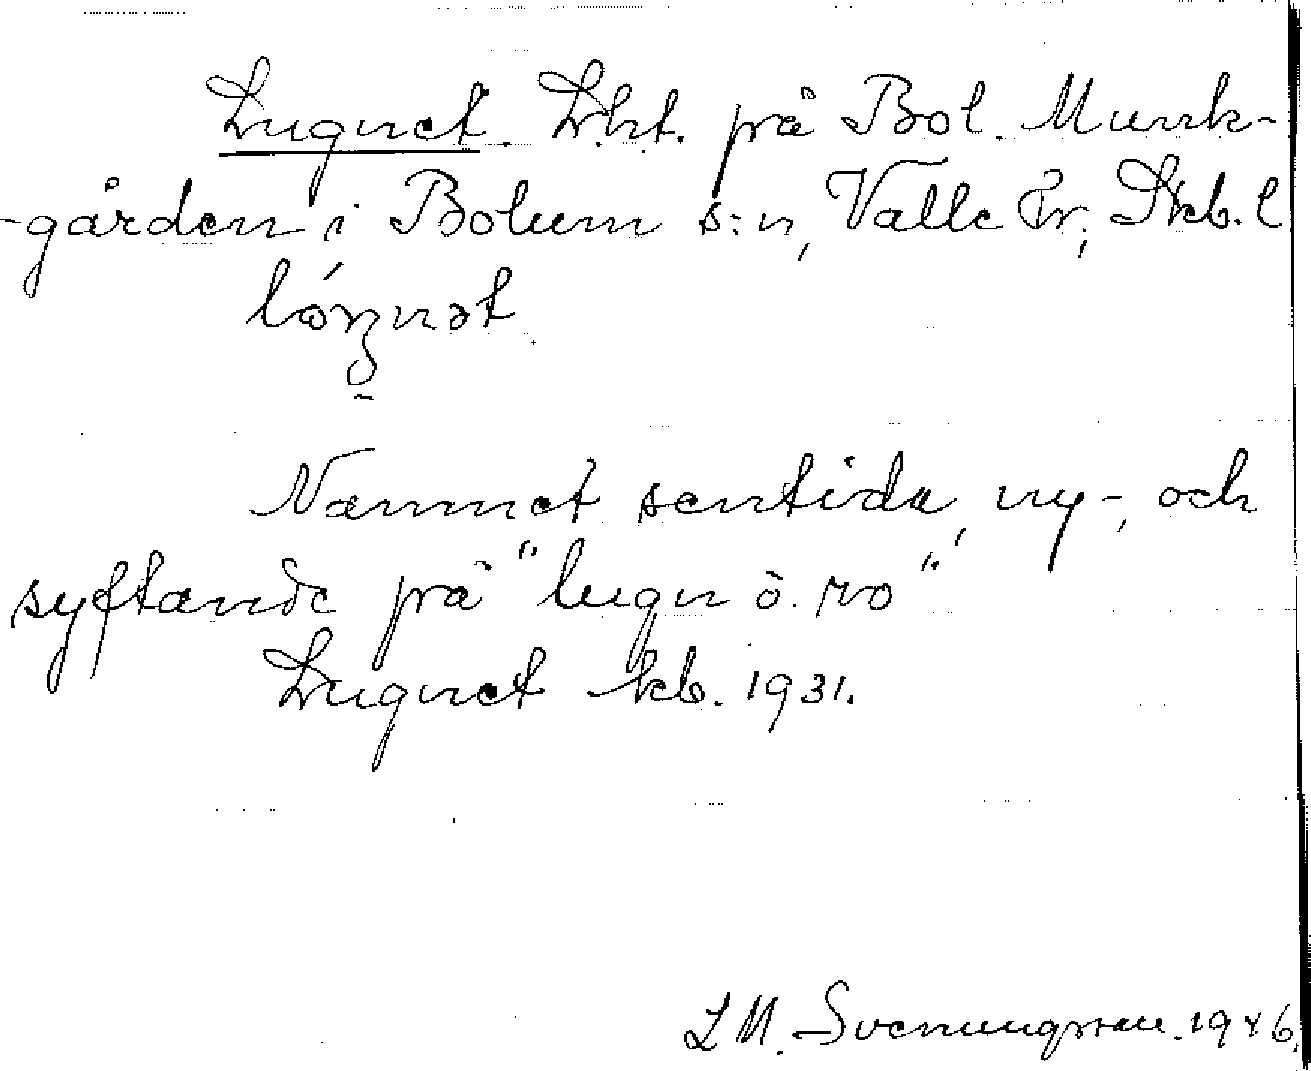 Lugnet. Lht. på Bol. Munk-
-gården i Bolum s:n, Valle hr; Skb. l
lóŋnət
Namnet sentida, ny-, och
syftande på "lugn o. ro"
Lugnet kb. 1931.
L M. Svenungsson. 1946.